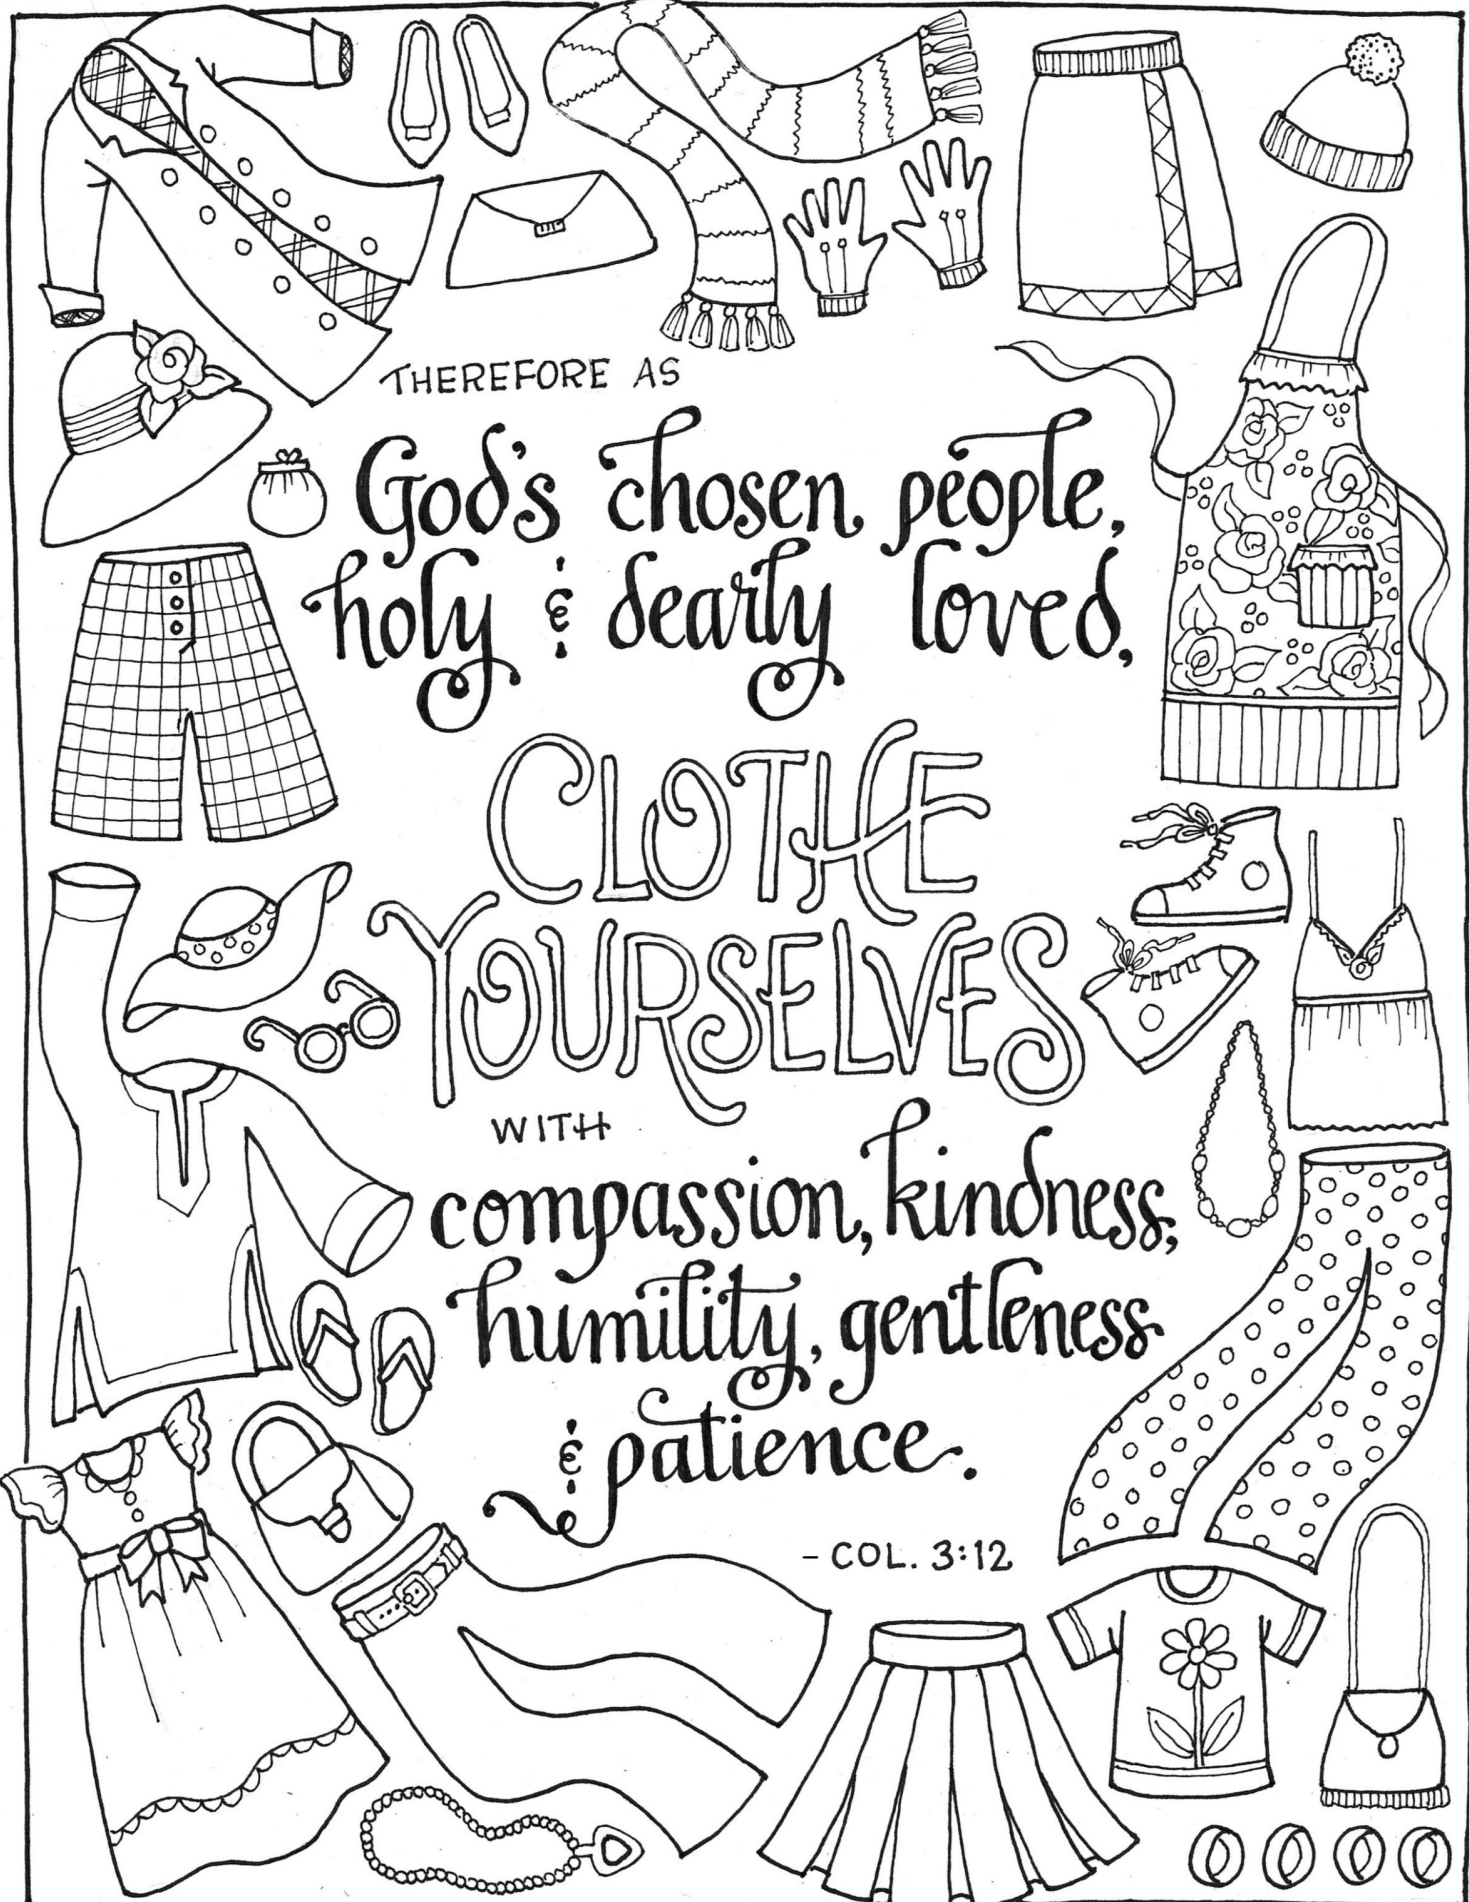 THEREFORE AS
God's chosen people,
holy & dearly loved,
CLOTHE
YOURSELVES
WITH
compassion, kindness,
humility, gentleness
& patience.
- COL. 3:12